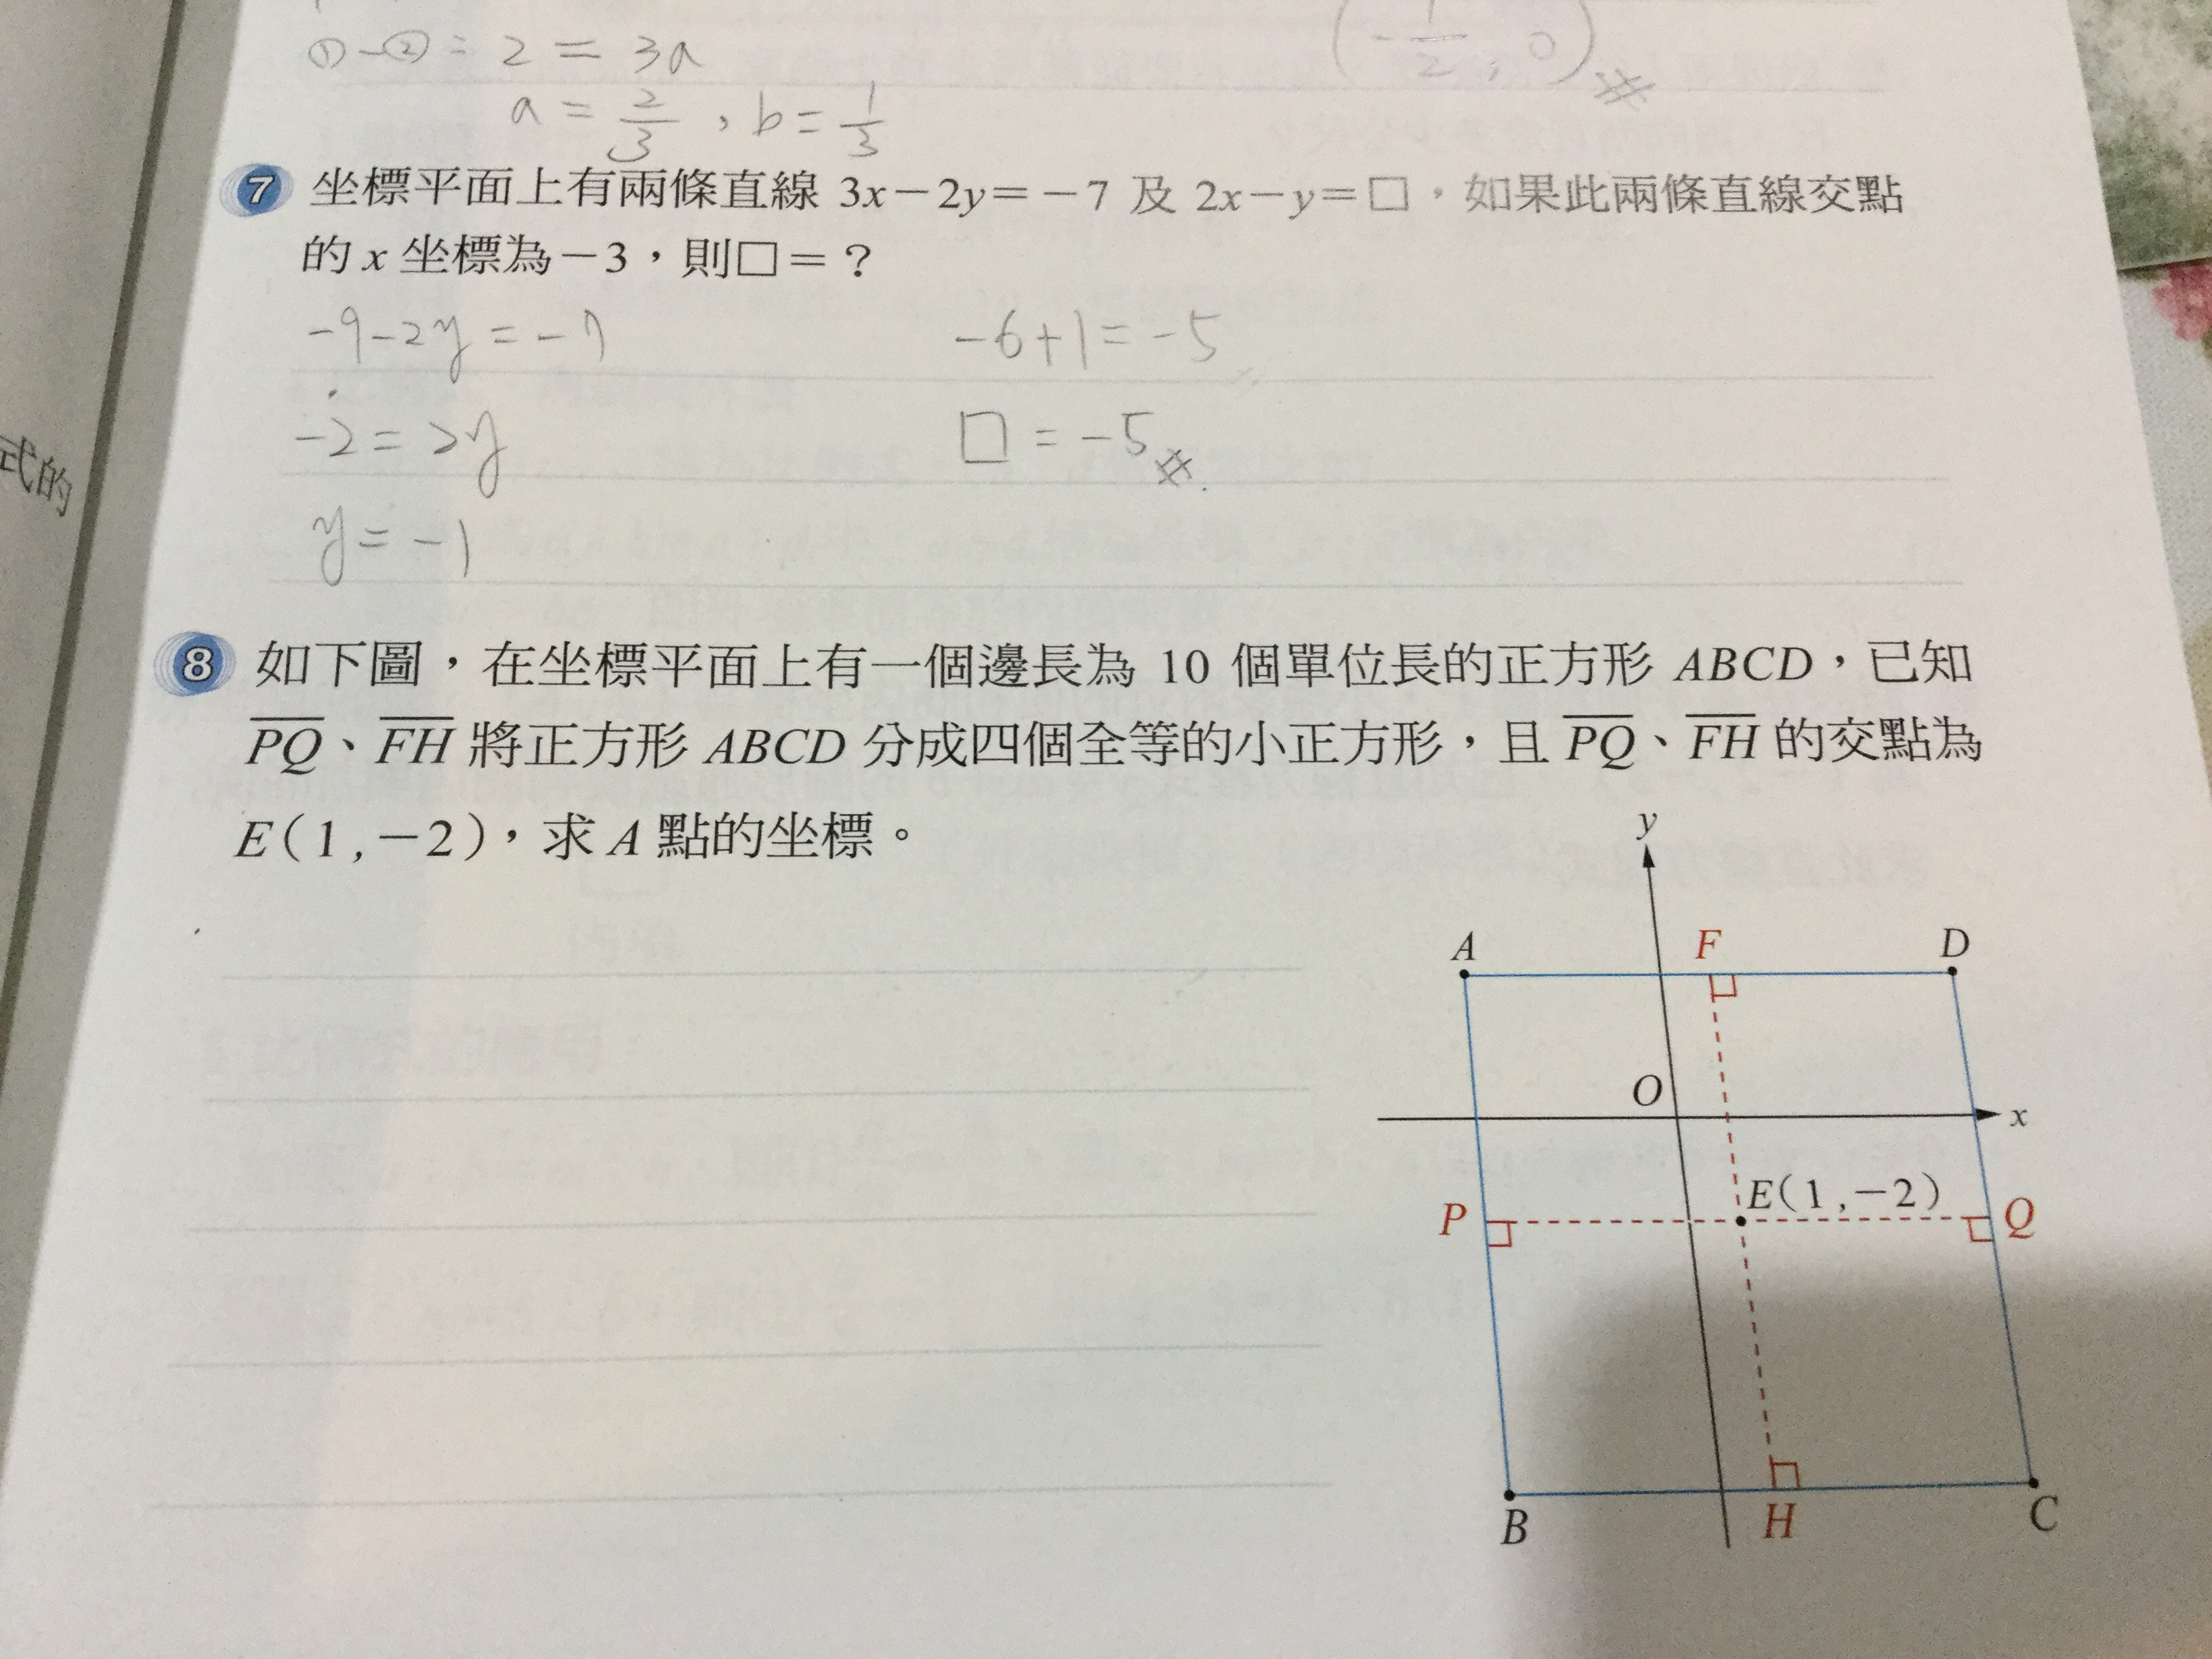 ①-②: 2 = 3a
a = 2/3 , b = 1/3
(-1/2, 0)
7 坐標平面上有兩條直線 3x-2y=-7 及 2x-y=□,如果此兩條直線交點
的 x 坐標為-3,則□=?
-9-2y = -7
-2 = 2y
y = -1
-6+1 = -5
□ = -5
式的
8 如下圖,在坐標平面上有一個邊長為 10 個單位長的正方形 ABCD,已知
PQ、FH 將正方形 ABCD 分成四個全等的小正方形,且 PQ、FH 的交點為
E(1,-2),求 A 點的坐標。
y
A F D
O
x
E(1,-2)
P Q
B H C